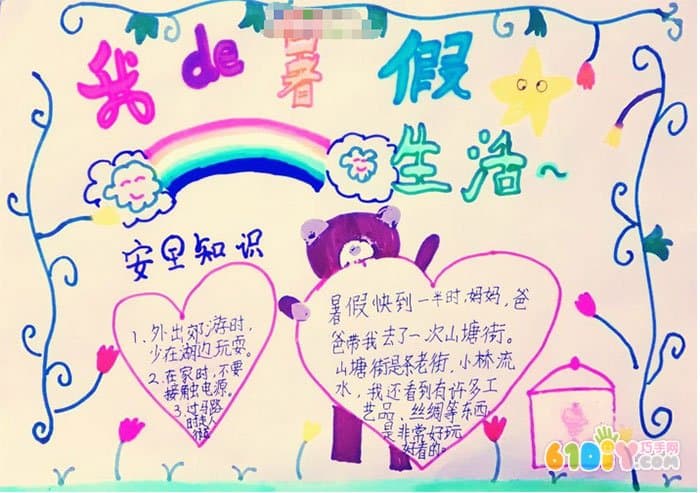 我de暑假
生活~
安里知识
1、外出郊游时,
少在湖边玩耍。
2.在家时,不要
接触电源。
3.过马路
时走人
行道
暑假快到一半时,妈妈,爸
爸带我去了一次山塘街。
山塘街是条老街,小林流
水,我还看到有许多工
艺品、丝绸等东西,
是非常好玩
好看的。
61DIY巧手网